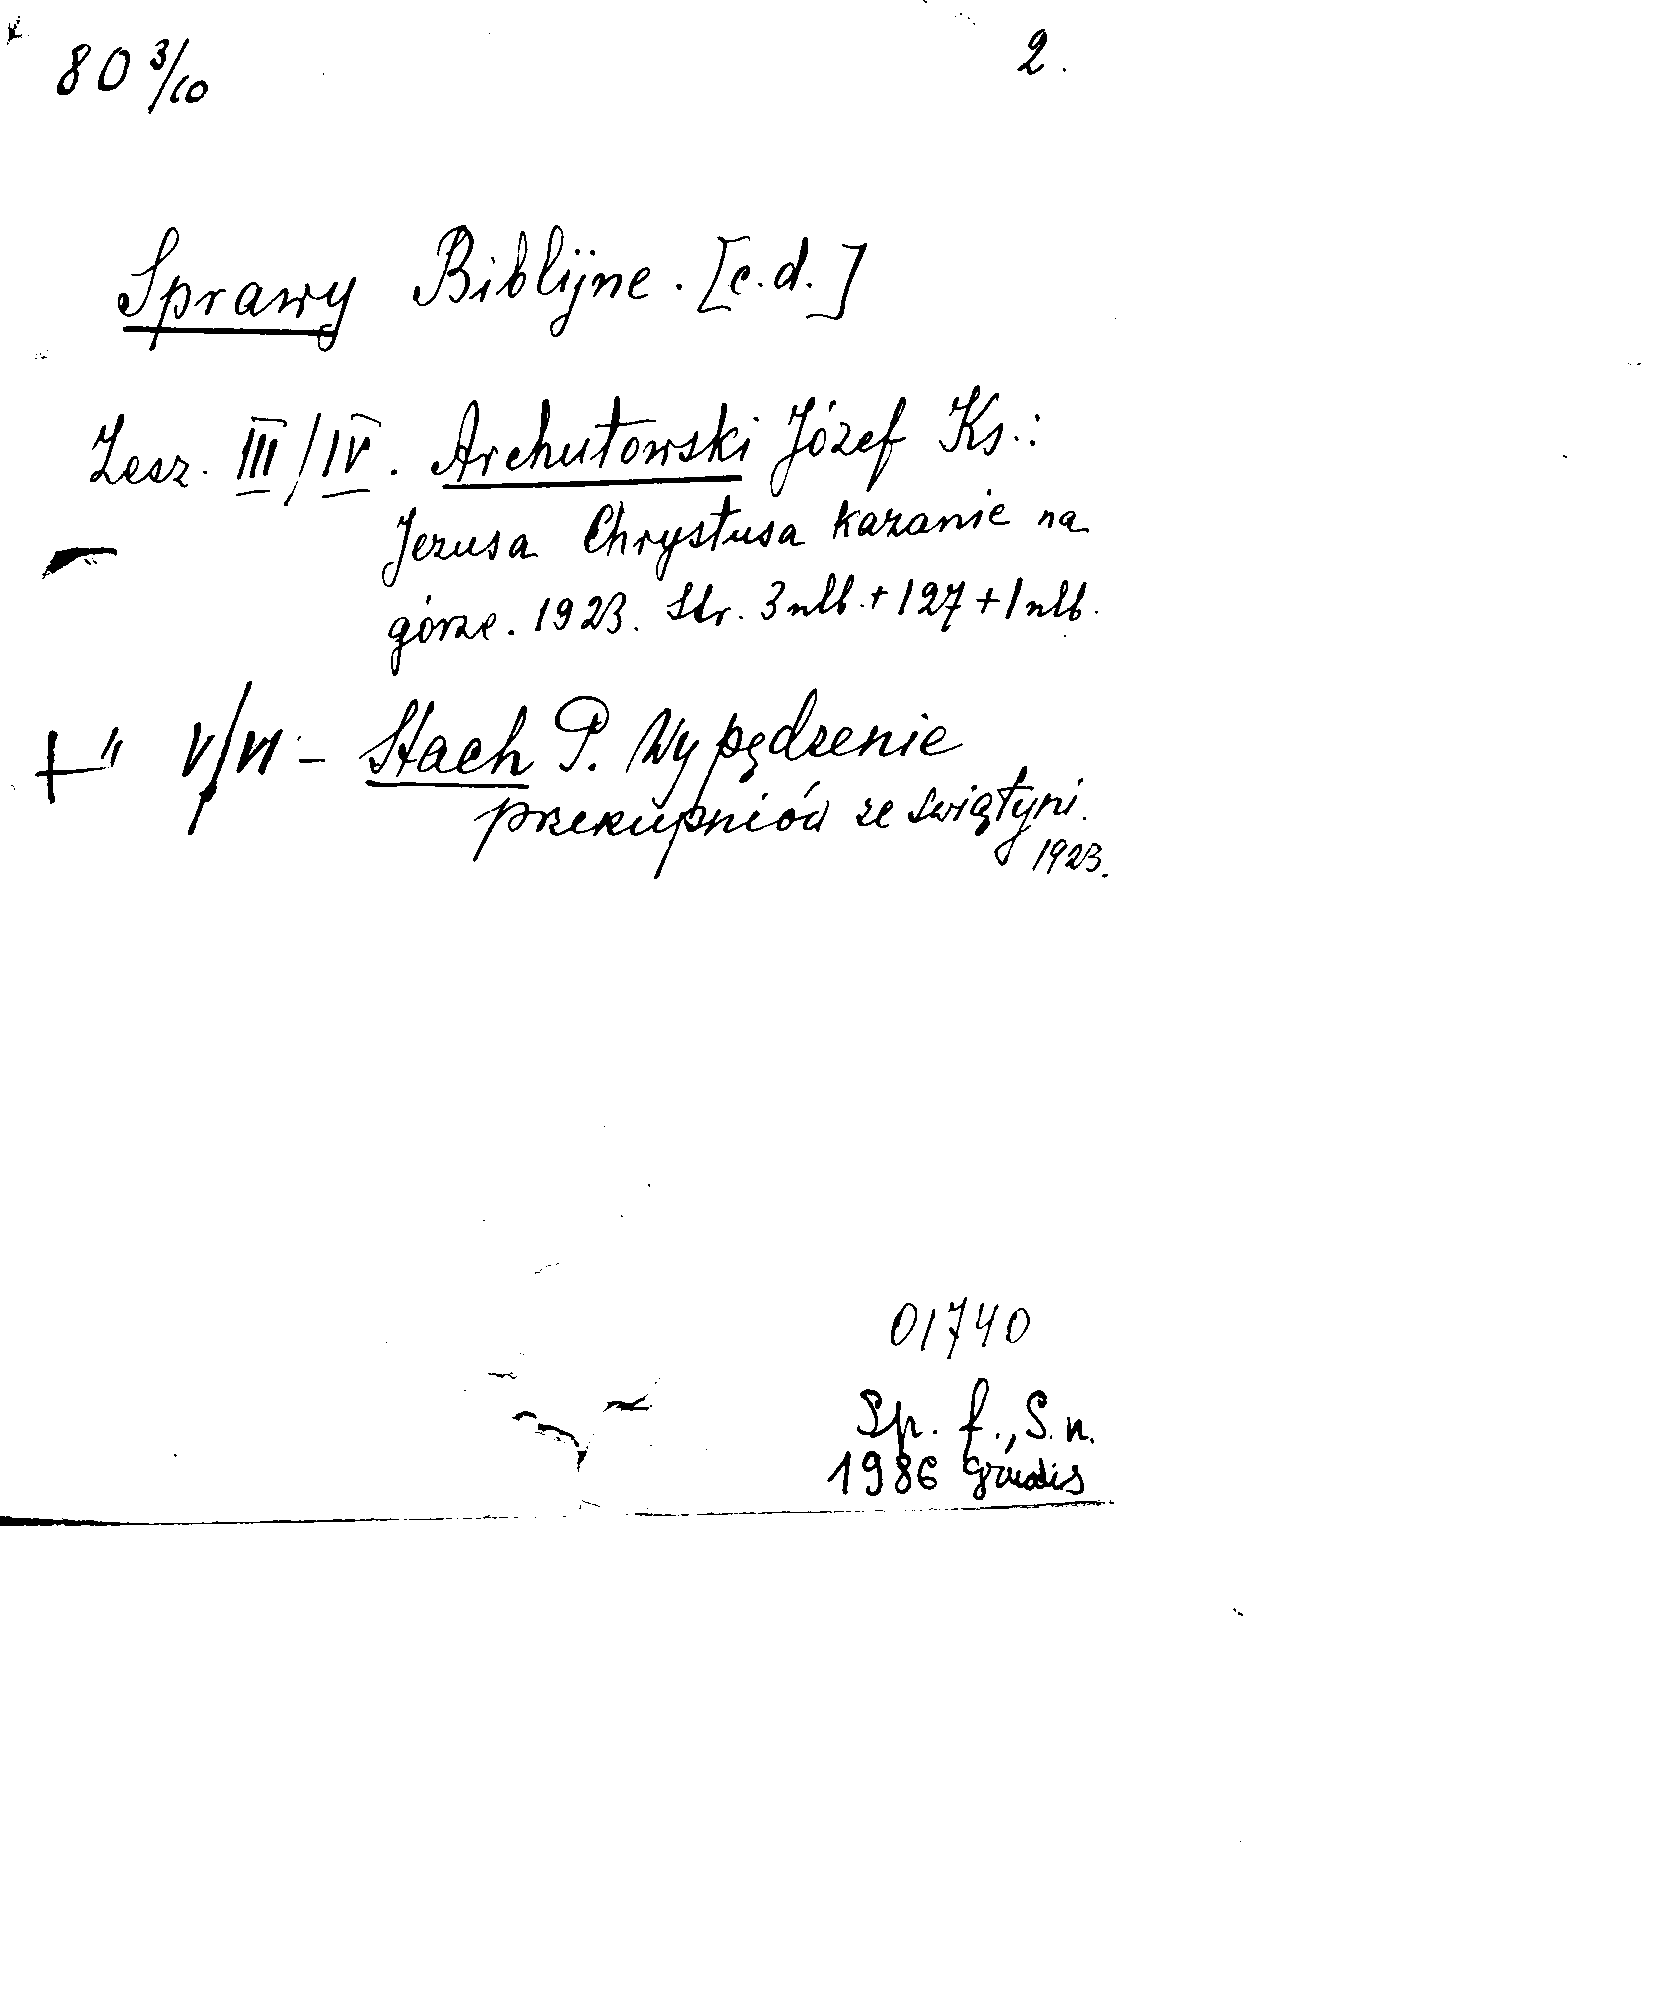 80 3/10 2.
Sprawy Biblijne. [c.d.]
Zesz. III/IV. Archutowski Józef Ks.:
Jezusa Chrystusa kazanie na
górze. 1923. Str. 3 nlb. + 127 + 1 nlb.
+ " V/VI - Stach P. Wypędzenie
przekupniów ze świątyni.
1923.
01740
Sp. f., S. n.
1986 Gratis